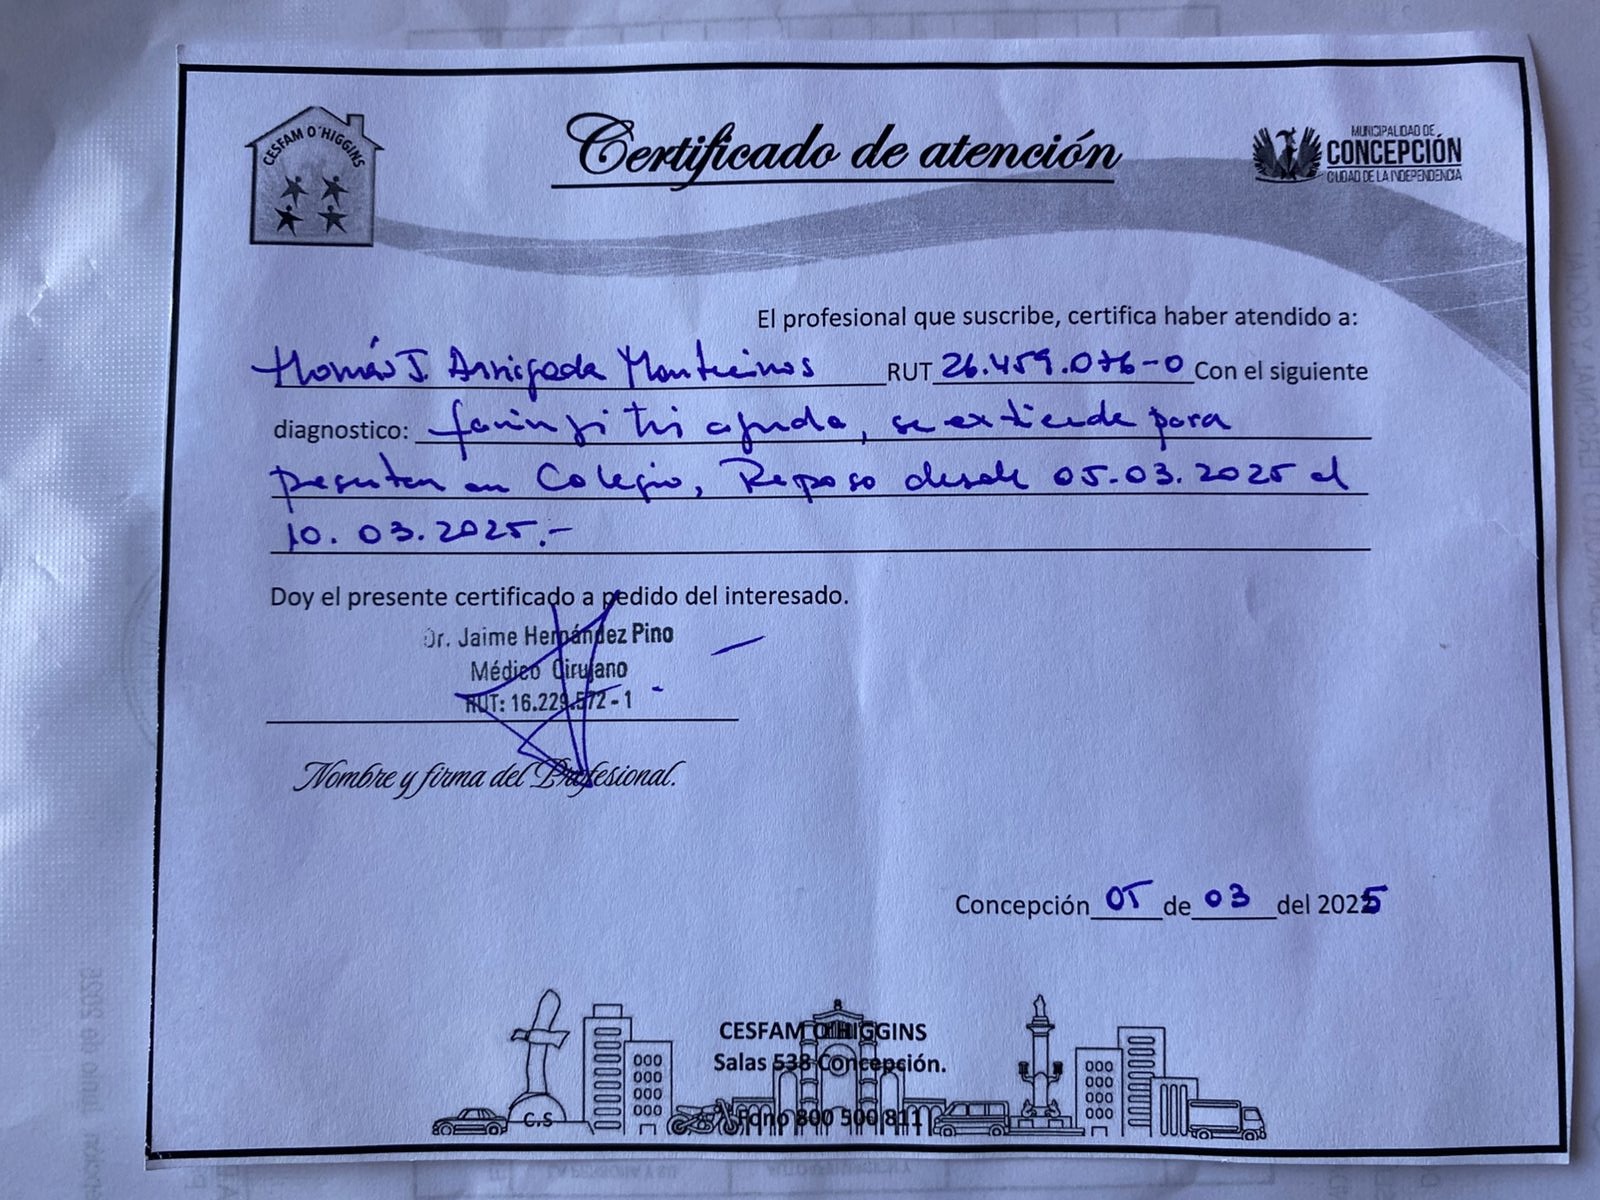 CESFAM O'HIGGINS
Certificado de atención
MUNICIPALIDAD DE
CONCEPCIÓN
CIUDAD DE LA INDEPENDENCIA
El profesional que suscribe, certifica haber atendido a:
Thomás J. Arriagada Montecinos RUT 26.459.076-0 Con el siguiente
diagnostico: faringitis aguda, se extiende para
presentar en Colegio, Reposo desde 05.03.2025 al
10.03.2025.-
Doy el presente certificado a pedido del interesado.
Dr. Jaime Hernández Pino
Médico Cirujano
RUT: 16.229.572-1
Nombre y firma del Profesional.
Concepción 05 de 03 del 2025
CESFAM O'HIGGINS
Salas 538 Concepción.
Fono 800 500 811
C.S